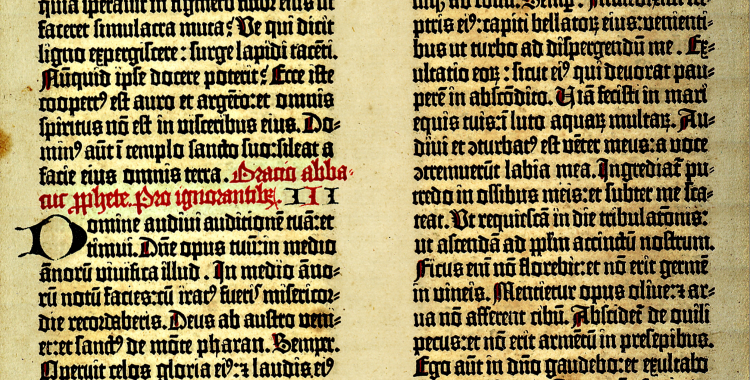 quia speravit in figmento fictor eius ut
faceret simulacra muta? Ve qui dicit
ligno expergiscere: surge lapidi tacēti.
Nūquid ipse docere poterit? Ecce iste
cooptꝰ est auro et argēto: et omnis
spiritus nō est in visceribus eius. Do-
minꝰ aūt ī templo sancto suo: sileat a
facie eius omnis terra. Oracio abba-
cuc ꝓphete. Pro ignorantibꝫ. III
Domine audivi auditionē tuā: et
timui. Dn̄e opus tuū: in medio
ānorū vivifica illud. In medio āno-
rū notū facies: cū iratꝰ fueris misericor-
die recordaberis. Deus ab austro veni-
et: et sanctꝰ de mōte pharan. Sempꝛ.
Operuit celos gloria eiꝰ: ⁊ laudis eiꝰ
ptris eiꝰ: capiti bellatoꝝ eius: venienti-
bus ut turbo ad dispergendū me. Ex-
ultatio eoꝝ: sicut eiꝰ qui devorat pau-
perē in abscōdito. Viā fecisti in mari
equis tuis: ī luto aquaꝝ multaꝝ. Au-
divi et ꝯturbatꝰ est vēter meus: a voce
ꝯtremuerūt labia mea. Ingrediat᷑ pu-
tredo in ossibus meis: et subter me sca-
teat. Ut requiescā in die tribulatōnis:
ut ascendā ad ppl̄m accinctū nostrum.
Ficus eni nō florebit: et nō erit germē
in vineis. Mentietur opus olive: ⁊ ar-
va nō afferent cibū. Abscidet᷑ de ovili
pecus: et nō erit armētū in presepibus.
Ego aūt in dn̄o gaudebo: et exultabo